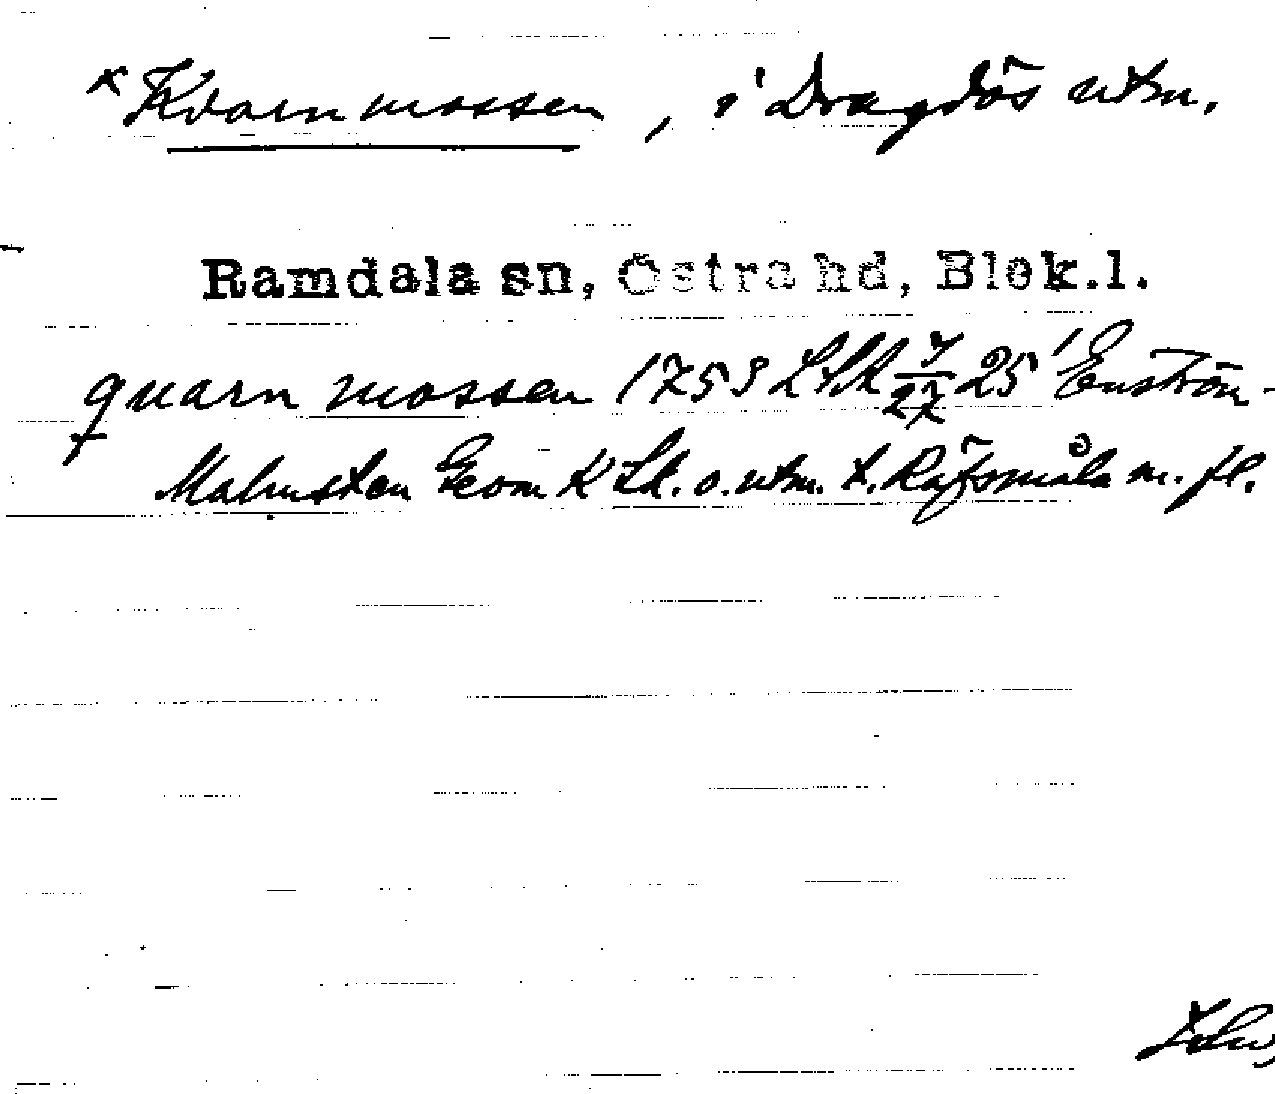 x Kvarnmossen, i Dragsös utm.
Ramdala sn, Östra hd, Blek.l.
quarn mossen 1753 LSK 7/27 25' Enström-
Malmsten Geom K Lk. o. utm. t. Räfsmåla m. fl.